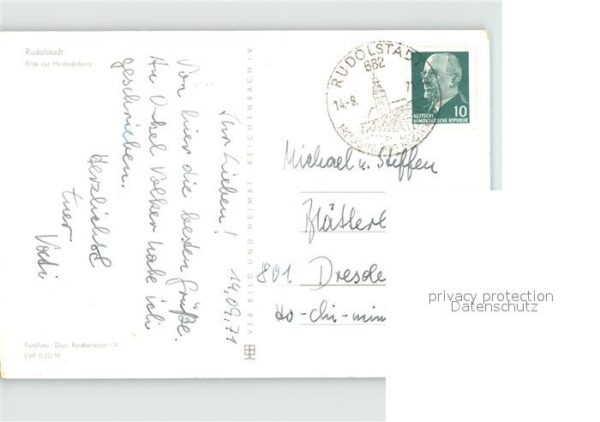 Rudolstadt
Blick zur Heidecksburg
14.09.71
Ihr Lieben!
Von hier die besten Grüße.
An Onkel Volker habe ich
geschrieben.
Herzlichst
Euer
Vati
VEB BILD UND HEIMAT REICHENBACH I.V.
Farbfoto: Darr, Reichenbach i. V.
EVP 0,20 M
RUDOLSTADT
682
14-9.
10
DEUTSCHE
DEMOKRATISCHE REPUBLIK
Michael u. Steffen
801 Dresde
Ho-chi-min
privacy protection
Datenschutz